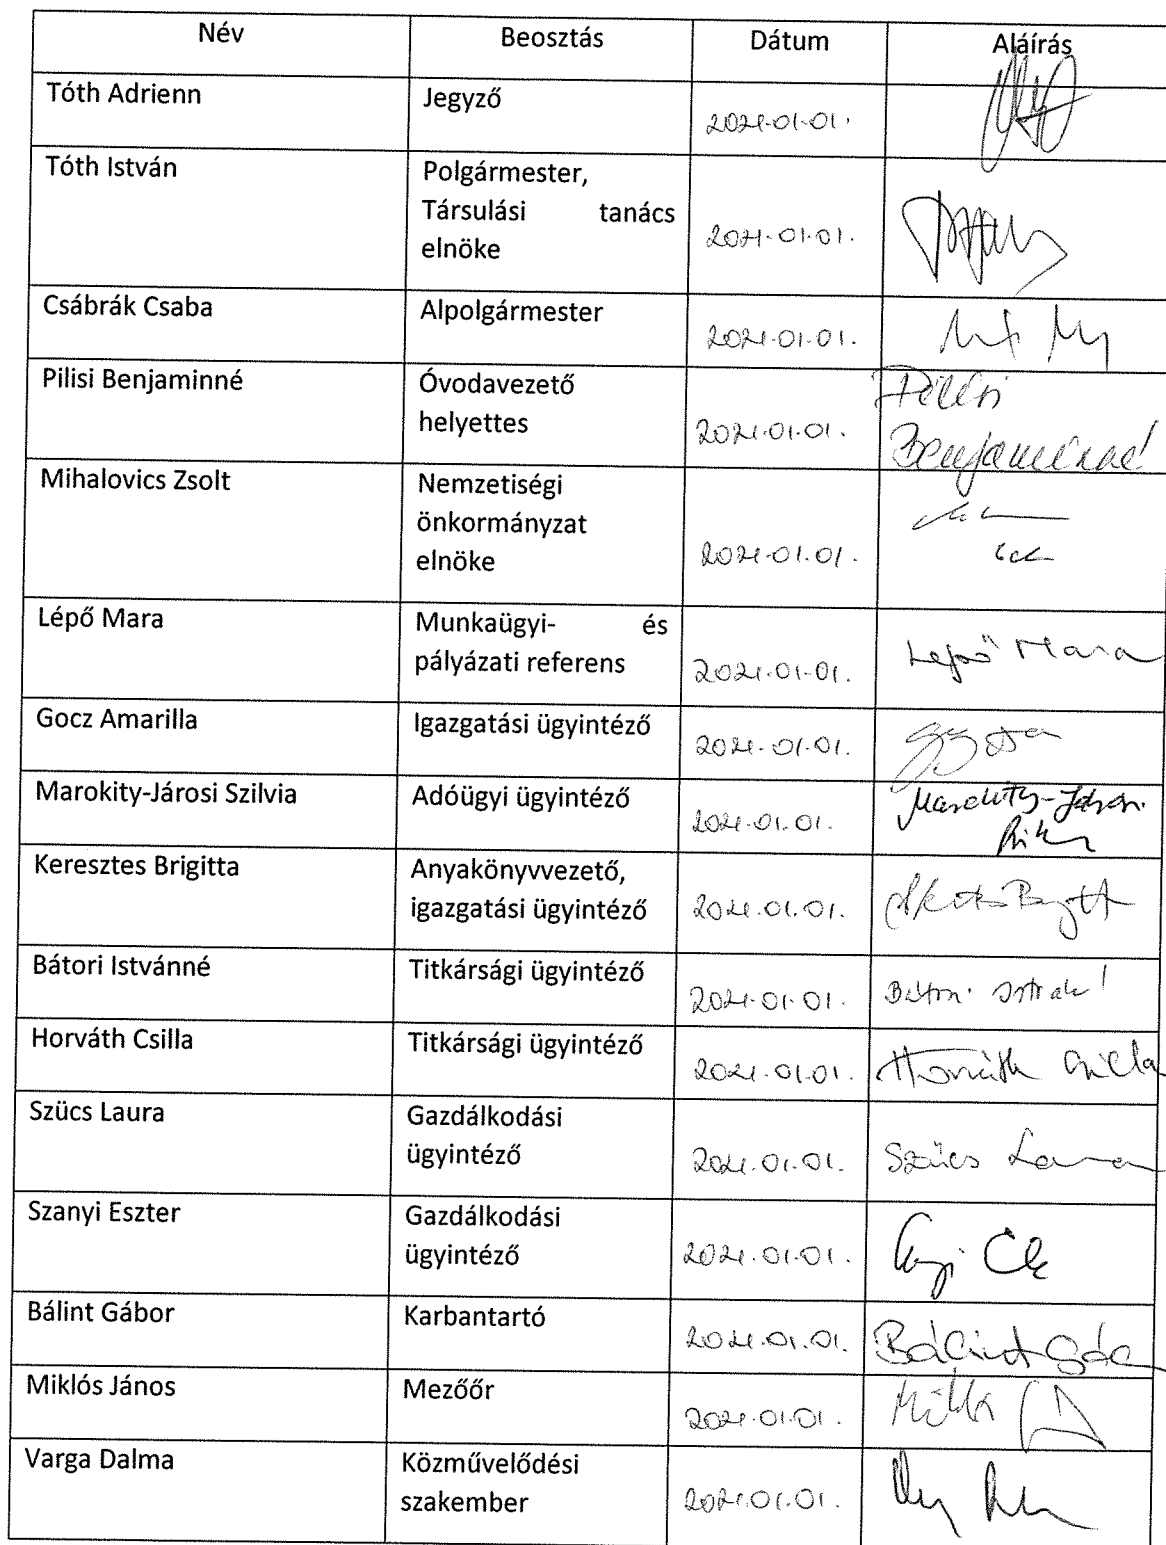 Név Beosztás Dátum Aláírás
Tóth Adrienn Jegyző 2021.01.01.
Tóth István Polgármester,
Társulási tanács
elnöke 2021.01.01.
Csábrák Csaba Alpolgármester 2021.01.01.
Pilisi Benjaminné Óvodavezető Pilisi
helyettes 2021.01.01. Benjaminné
Mihalovics Zsolt Nemzetiségi
önkormányzat
elnöke 2021.01.01.
Lépő Mara Munkaügyi- és
pályázati referens 2021.01.01. Lépő Mara
Gocz Amarilla Igazgatási ügyintéző 2021.01.01.
Marokity-Járosi Szilvia Adóügyi ügyintéző 2021.01.01. Marokity-Járosi
Keresztes Brigitta Anyakönyvvezető,
igazgatási ügyintéző 2021.01.01.
Bátori Istvánné Titkársági ügyintéző 2021.01.01. Bátori Istvánné
Horváth Csilla Titkársági ügyintéző 2021.01.01. Horváth Csilla
Szücs Laura Gazdálkodási
ügyintéző 2021.01.01. Szücs Laura
Szanyi Eszter Gazdálkodási
ügyintéző 2021.01.01.
Bálint Gábor Karbantartó 2021.01.01. Bálint Gábor
Miklós János Mezőőr 2021.01.01.
Varga Dalma Közművelődési
szakember 2021.01.01.